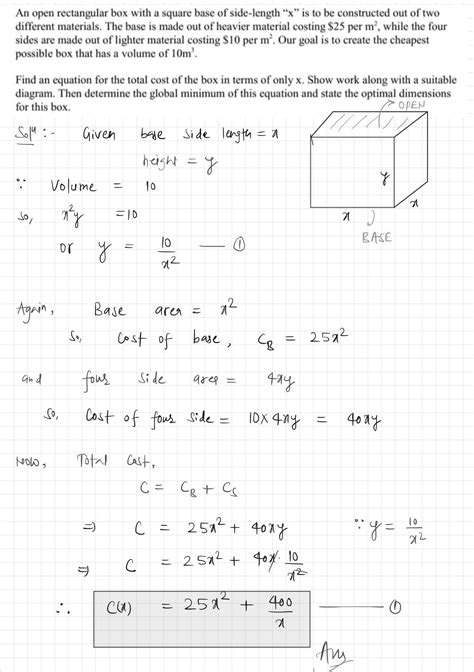 An open rectangular box with a square base of side-length “x” is to be constructed out of two
different materials. The base is made out of heavier material costing $25 per m², while the four
sides are made out of lighter material costing $10 per m². Our goal is to create the cheapest
possible box that has a volume of 10m³.
Find an equation for the total cost of the box in terms of only x. Show work along with a suitable
diagram. Then determine the global minimum of this equation and state the optimal dimensions
for this box.
OPEN
Solⁿ :- Given base side length = x
height = y
y
∵ Volume = 10
x
x
so, x²y = 10
BASE
or y = 10/x² —— ①
Again, Base area = x²
So, Cost of base, C_B = 25x²
and four side area = 4xy
So, Cost of four side = 10 x 4xy = 40xy
Now, Total Cost,
C = C_B + C_S
⇒ C = 25x² + 40xy ∵ y = 10/x²
⇒ C = 25x² + 40x · 10/x²
∴ C(x) = 25x² + 400/x —— ①
Ans